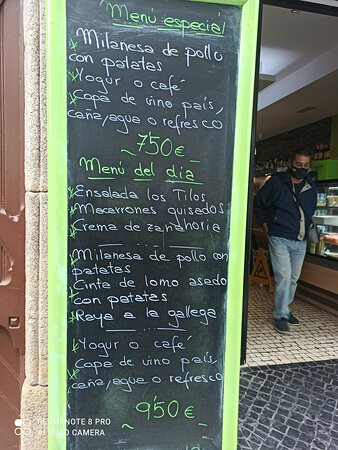 Menú especial
Milanesa de pollo
con patatas
Yogur o café
Copa de vino país,
caña, agua o refresco
~ 7'50€ ~
Menú del día
Ensalada los Tilos
Macarrones guisados
Crema de zanahoria
Milanesa de pollo con
patatas
Cinta de lomo asado
con patatas
Raya a la gallega
Yogur o café
Copa de vino país,
caña, agua o refresco
~ 9'50€ ~
REDMI NOTE 8 PRO
AI QUAD CAMERA